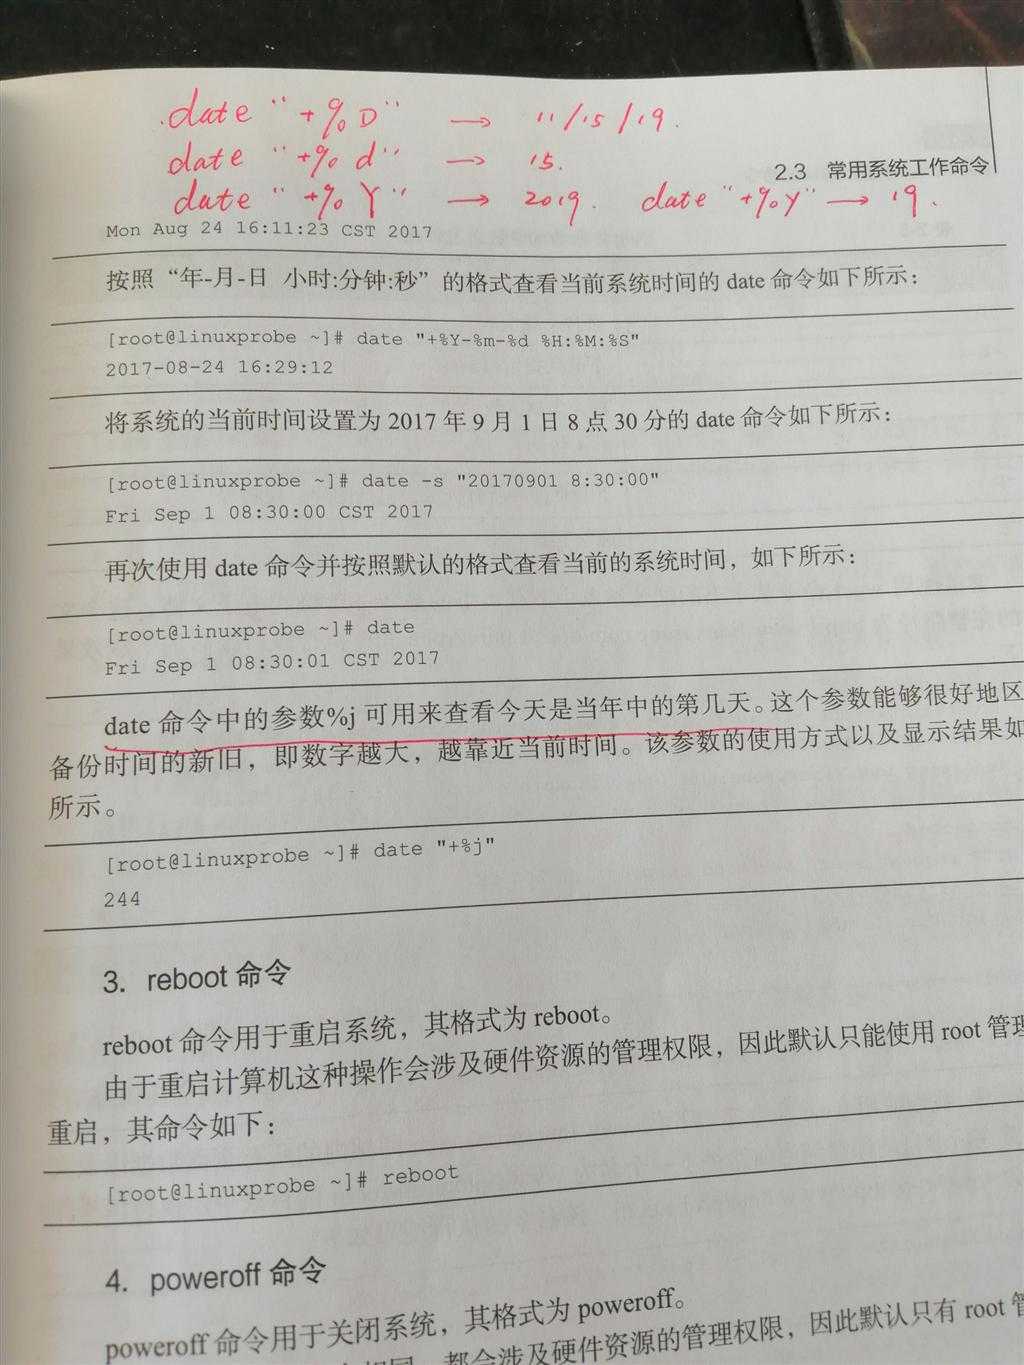 date "+%D" → 11/15/19.
date "+%d" → 15.
2.3 常用系统工作命令
date "+%Y" → 2019. date "+%y" → 19.
Mon Aug 24 16:11:23 CST 2017
按照“年-月-日 小时:分钟:秒”的格式查看当前系统时间的 date 命令如下所示：
[root@linuxprobe ~]# date "+%Y-%m-%d %H:%M:%S"
2017-08-24 16:29:12
将系统的当前时间设置为 2017 年 9 月 1 日 8 点 30 分的 date 命令如下所示：
[root@linuxprobe ~]# date -s "20170901 8:30:00"
Fri Sep 1 08:30:00 CST 2017
再次使用 date 命令并按照默认的格式查看当前的系统时间，如下所示：
[root@linuxprobe ~]# date
Fri Sep 1 08:30:01 CST 2017
date 命令中的参数%j 可用来查看今天是当年中的第几天。这个参数能够很好地区
备份时间的新旧，即数字越大，越靠近当前时间。该参数的使用方式以及显示结果如
所示。
[root@linuxprobe ~]# date "+%j"
244
3. reboot 命令
reboot 命令用于重启系统，其格式为 reboot。
由于重启计算机这种操作会涉及硬件资源的管理权限，因此默认只能使用 root 管理
重启，其命令如下：
[root@linuxprobe ~]# reboot
4. poweroff 命令
poweroff 命令用于关闭系统，其格式为 poweroff。
都会涉及硬件资源的管理权限，因此默认只有 root 管